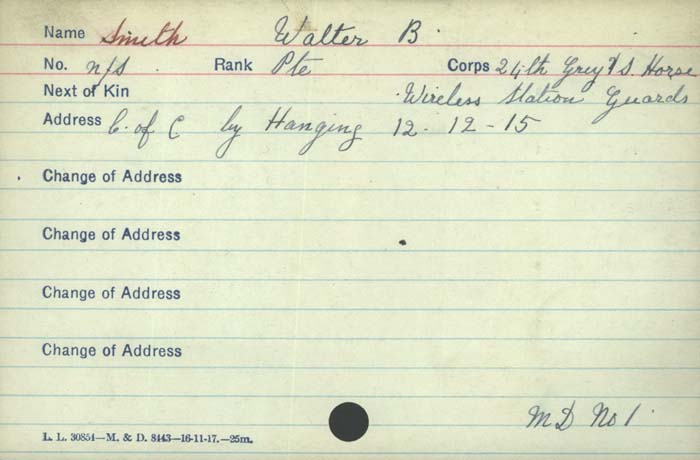 Name Smith Walter B.
No. n/s Rank Pte Corps 24th Grey's Horse
Next of Kin Wireless Station Guards
Address C. of C by Hanging 12-12-15
Change of Address
Change of Address
Change of Address
Change of Address
M D No 1
L. L. 30854—M. & D. 8443—16-11-17.—25m.